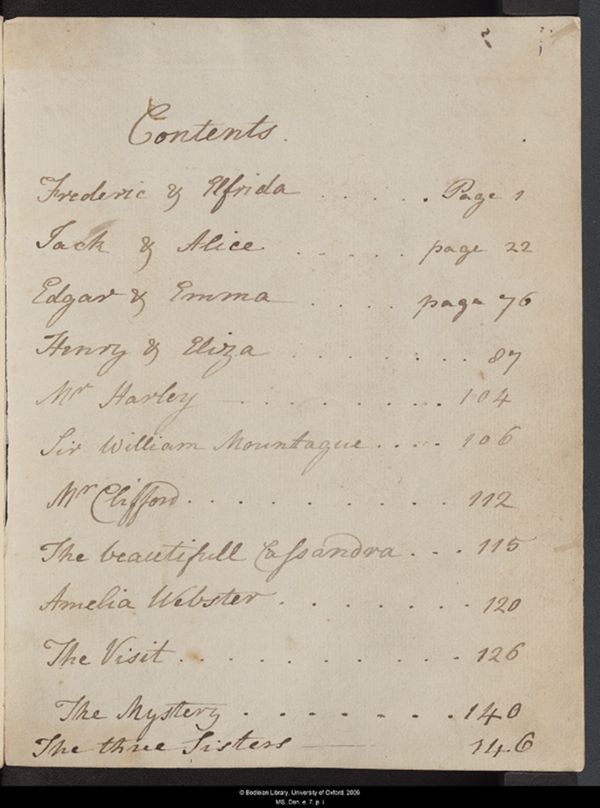 Contents.
Frederic & Elfrida . . . . . . Page 1
Jack & Alice . . . . . . page 22
Edgar & Emma . . . . page 76
Henry & Eliza . . . . . . . . 87
Mr Harley — . . . . . . . . 104
Sir William Mountague . . . . 106
Mr Clifford . . . . . . . . . . 112
The beautifull Cassandra . . . 115
Amelia Webster . . . . . . . . 120
The Visit . . . . . . . . . . . 126
The Mystery . . . . . . . . 140
The three Sisters — 146
© Bodleian Library, University of Oxford, 2009
MS. Don. e. 7, p. i